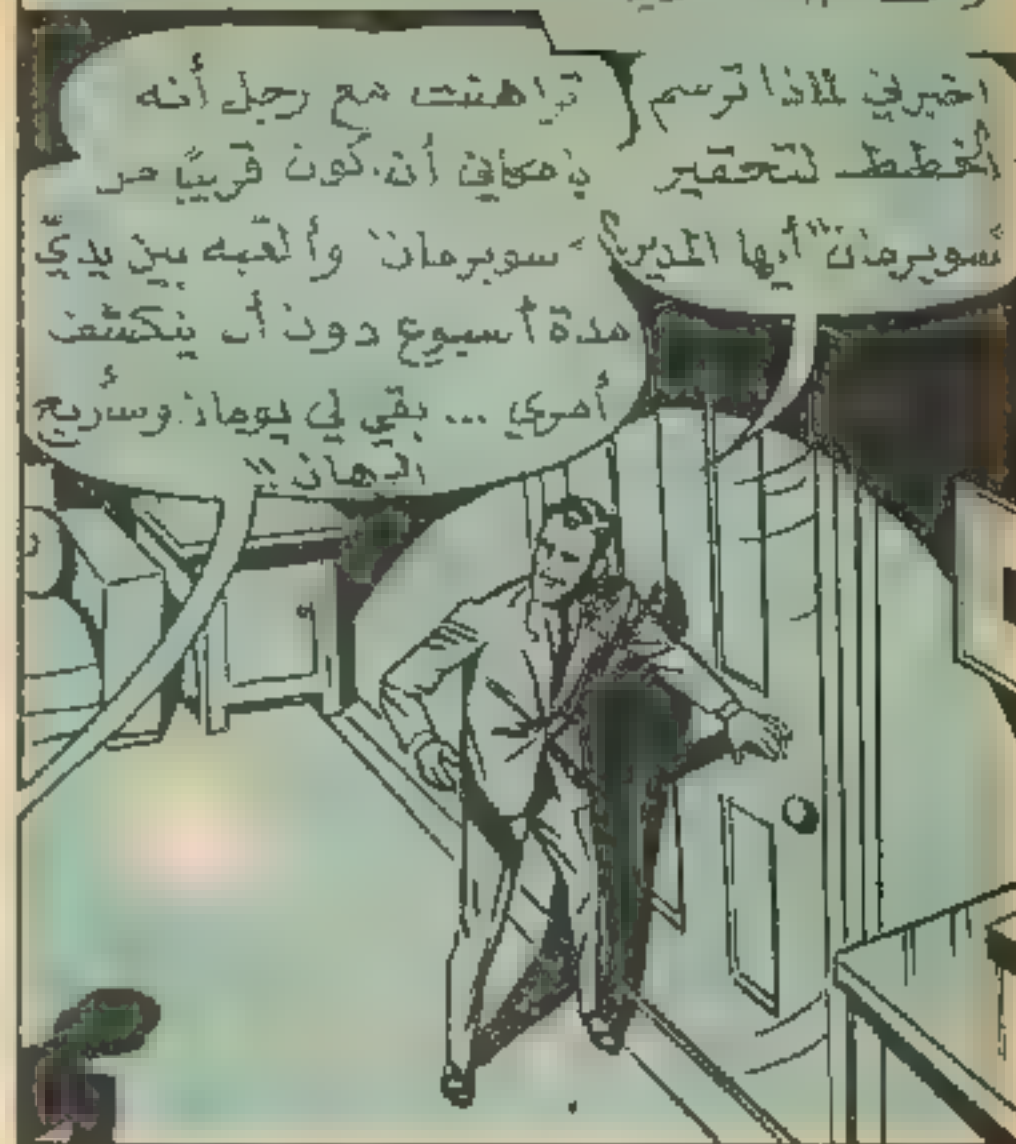 اخبرني لماذا ترسم
الخطط لتحقير
"سوبرمان" أيها المدير؟
تراهنت مع رجل أنه
بإمكاني أن كون قريبًا من
"سوبرمان" وألعبه بين يديّ
مدة أسبوع دون أن ينكشف
أمري ... بقي لي يومان وسأربح
الرهان!!